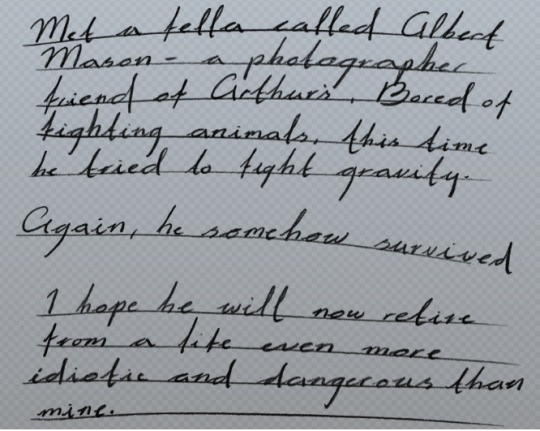 Met a fella called Albert
Mason - a photographer
friend of Arthur's. Bored of
fighting animals, this time
he tried to fight gravity.
Again, he somehow survived
I hope he will now retire
from a life even more
idiotic and dangerous than
mine.